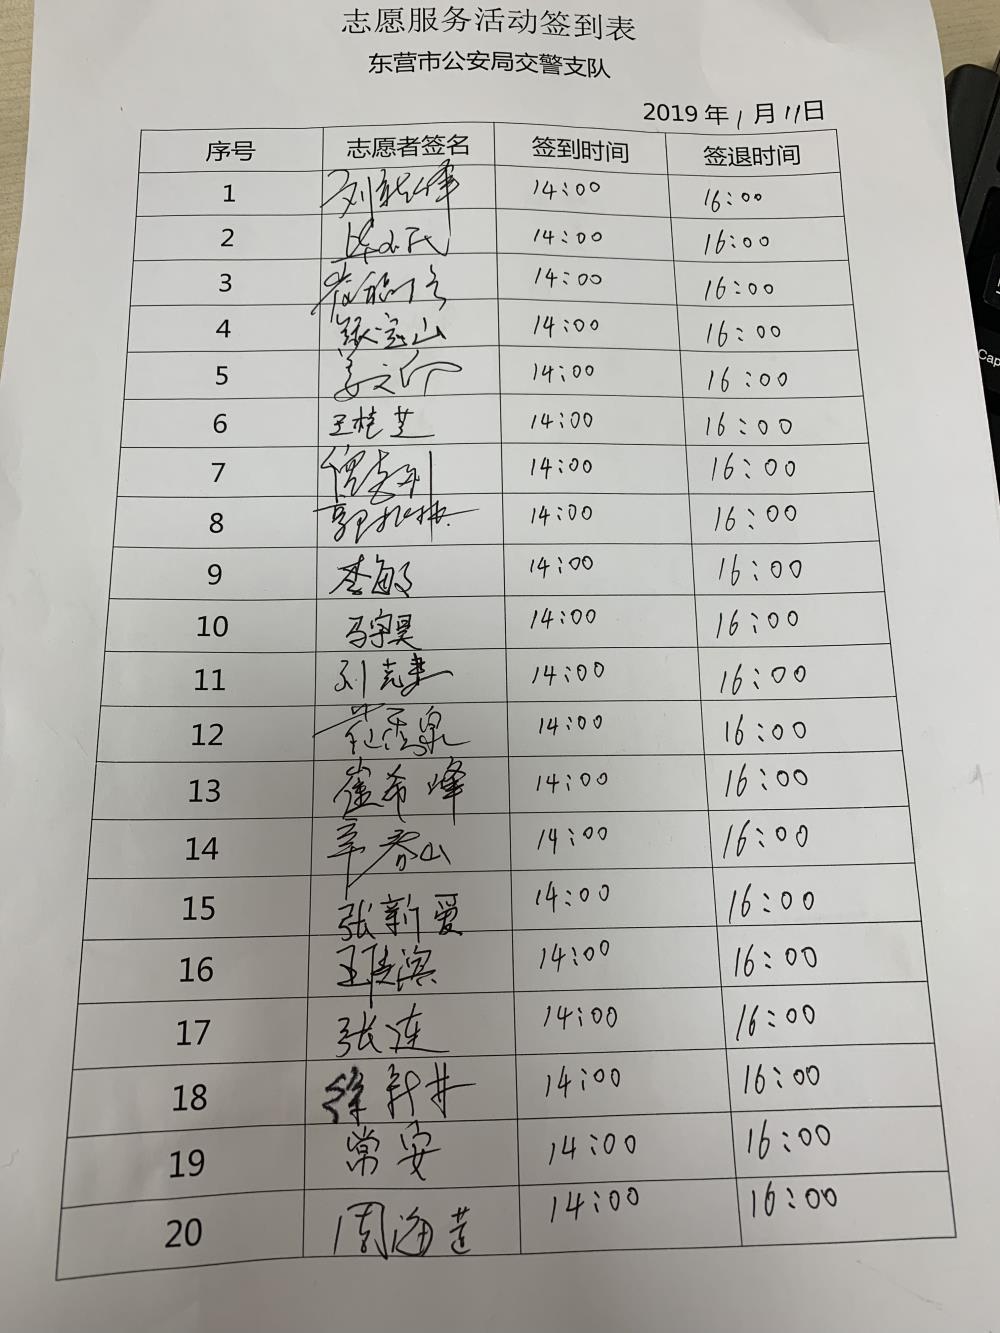 志愿服务活动签到表
东营市公安局交警支队
2019 年 1 月 11 日
序号 志愿者签名 签到时间 签退时间
1 14:00 16:00
2 14:00 16:00
3 14:00 16:00
4 张宝山 14:00 16:00
5 姜文 14:00 16:00
6 王桂芝 14:00 16:00
7 14:00 16:00
8 郭 14:00 16:00
9 李敏 14:00 16:00
10 马宇昊 14:00 16:00
11 刘克建 14:00 16:00
12 泉 14:00 16:00
13 崔希峰 14:00 16:00
14 辛春山 14:00 16:00
15 张新爱 14:00 16:00
16 王滨 14:00 16:00
17 张连 14:00 16:00
18 徐新井 14:00 16:00
19 常安 14:00 16:00
20 周海莲 14:00 16:00
Cap